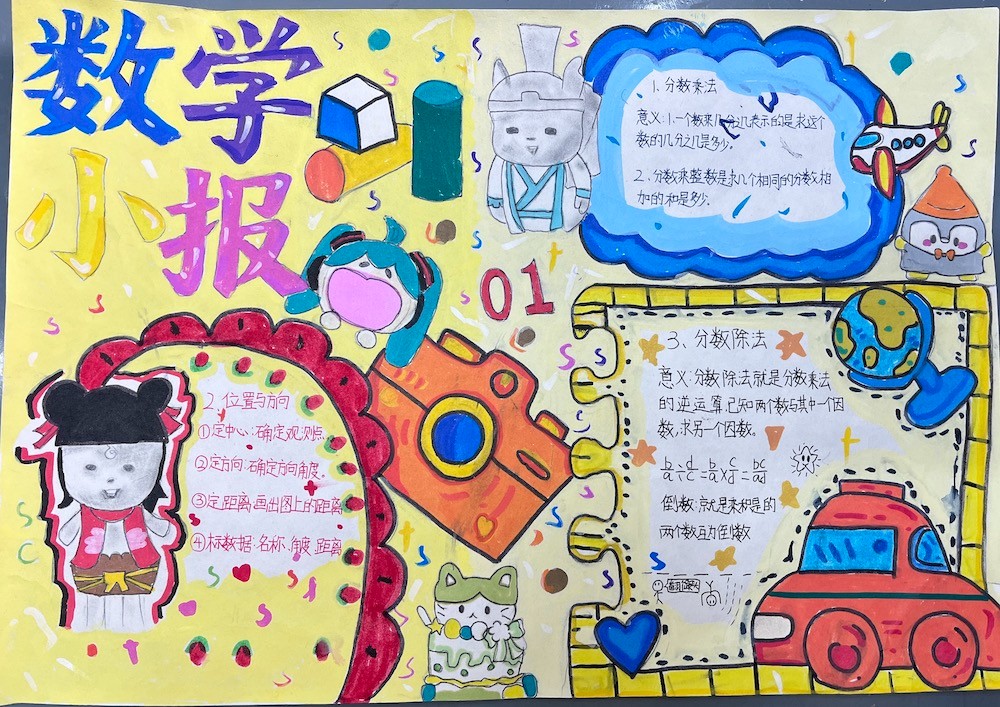 数学
小报
01
1、分数乘法
意义:1.一个数乘几分之几表示的是求这个
数的几分之几是多少。
2、分数乘整数是求几个相同的分数相
加的和是多少.
2、位置与方向
①定中心:确定观测点.
②定方向:确定方向角度.
③定距离:画出图上的距离
④标数据:名称、角度、距离
3、分数除法
意义:分数除法就是分数乘法
的逆运算,已知两个数与其中一个因
数,求另一个因数。
b/a÷d/c=b/a×c/d=bc/ad
倒数:就是乘积是的
两个数互为倒数